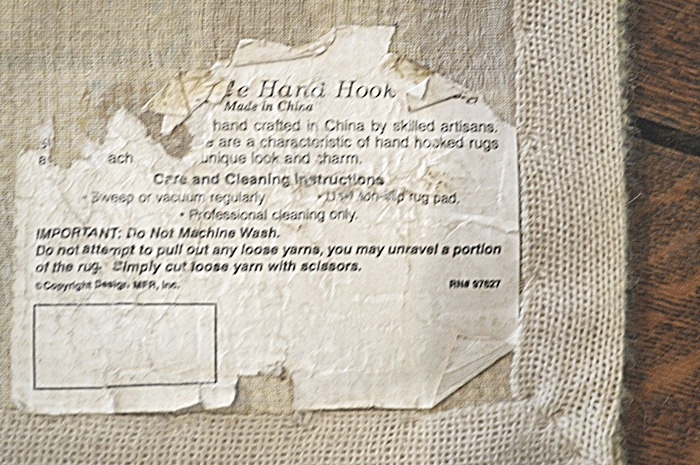 le Hand Hook
Made in China
hand crafted in China by skilled artisans.
are a characteristic of hand hooked rugs
ach unique look and charm.
Care and Cleaning Instructions
• Sweep or vacuum regularly • Use non-slip rug pad.
• Professional cleaning only.
IMPORTANT: Do Not Machine Wash.
Do not attempt to pull out any loose yarns, you may unravel a portion
of the rug. Simply cut loose yarn with scissors.
©Copyright Design, MFR, Inc. RN# 97627